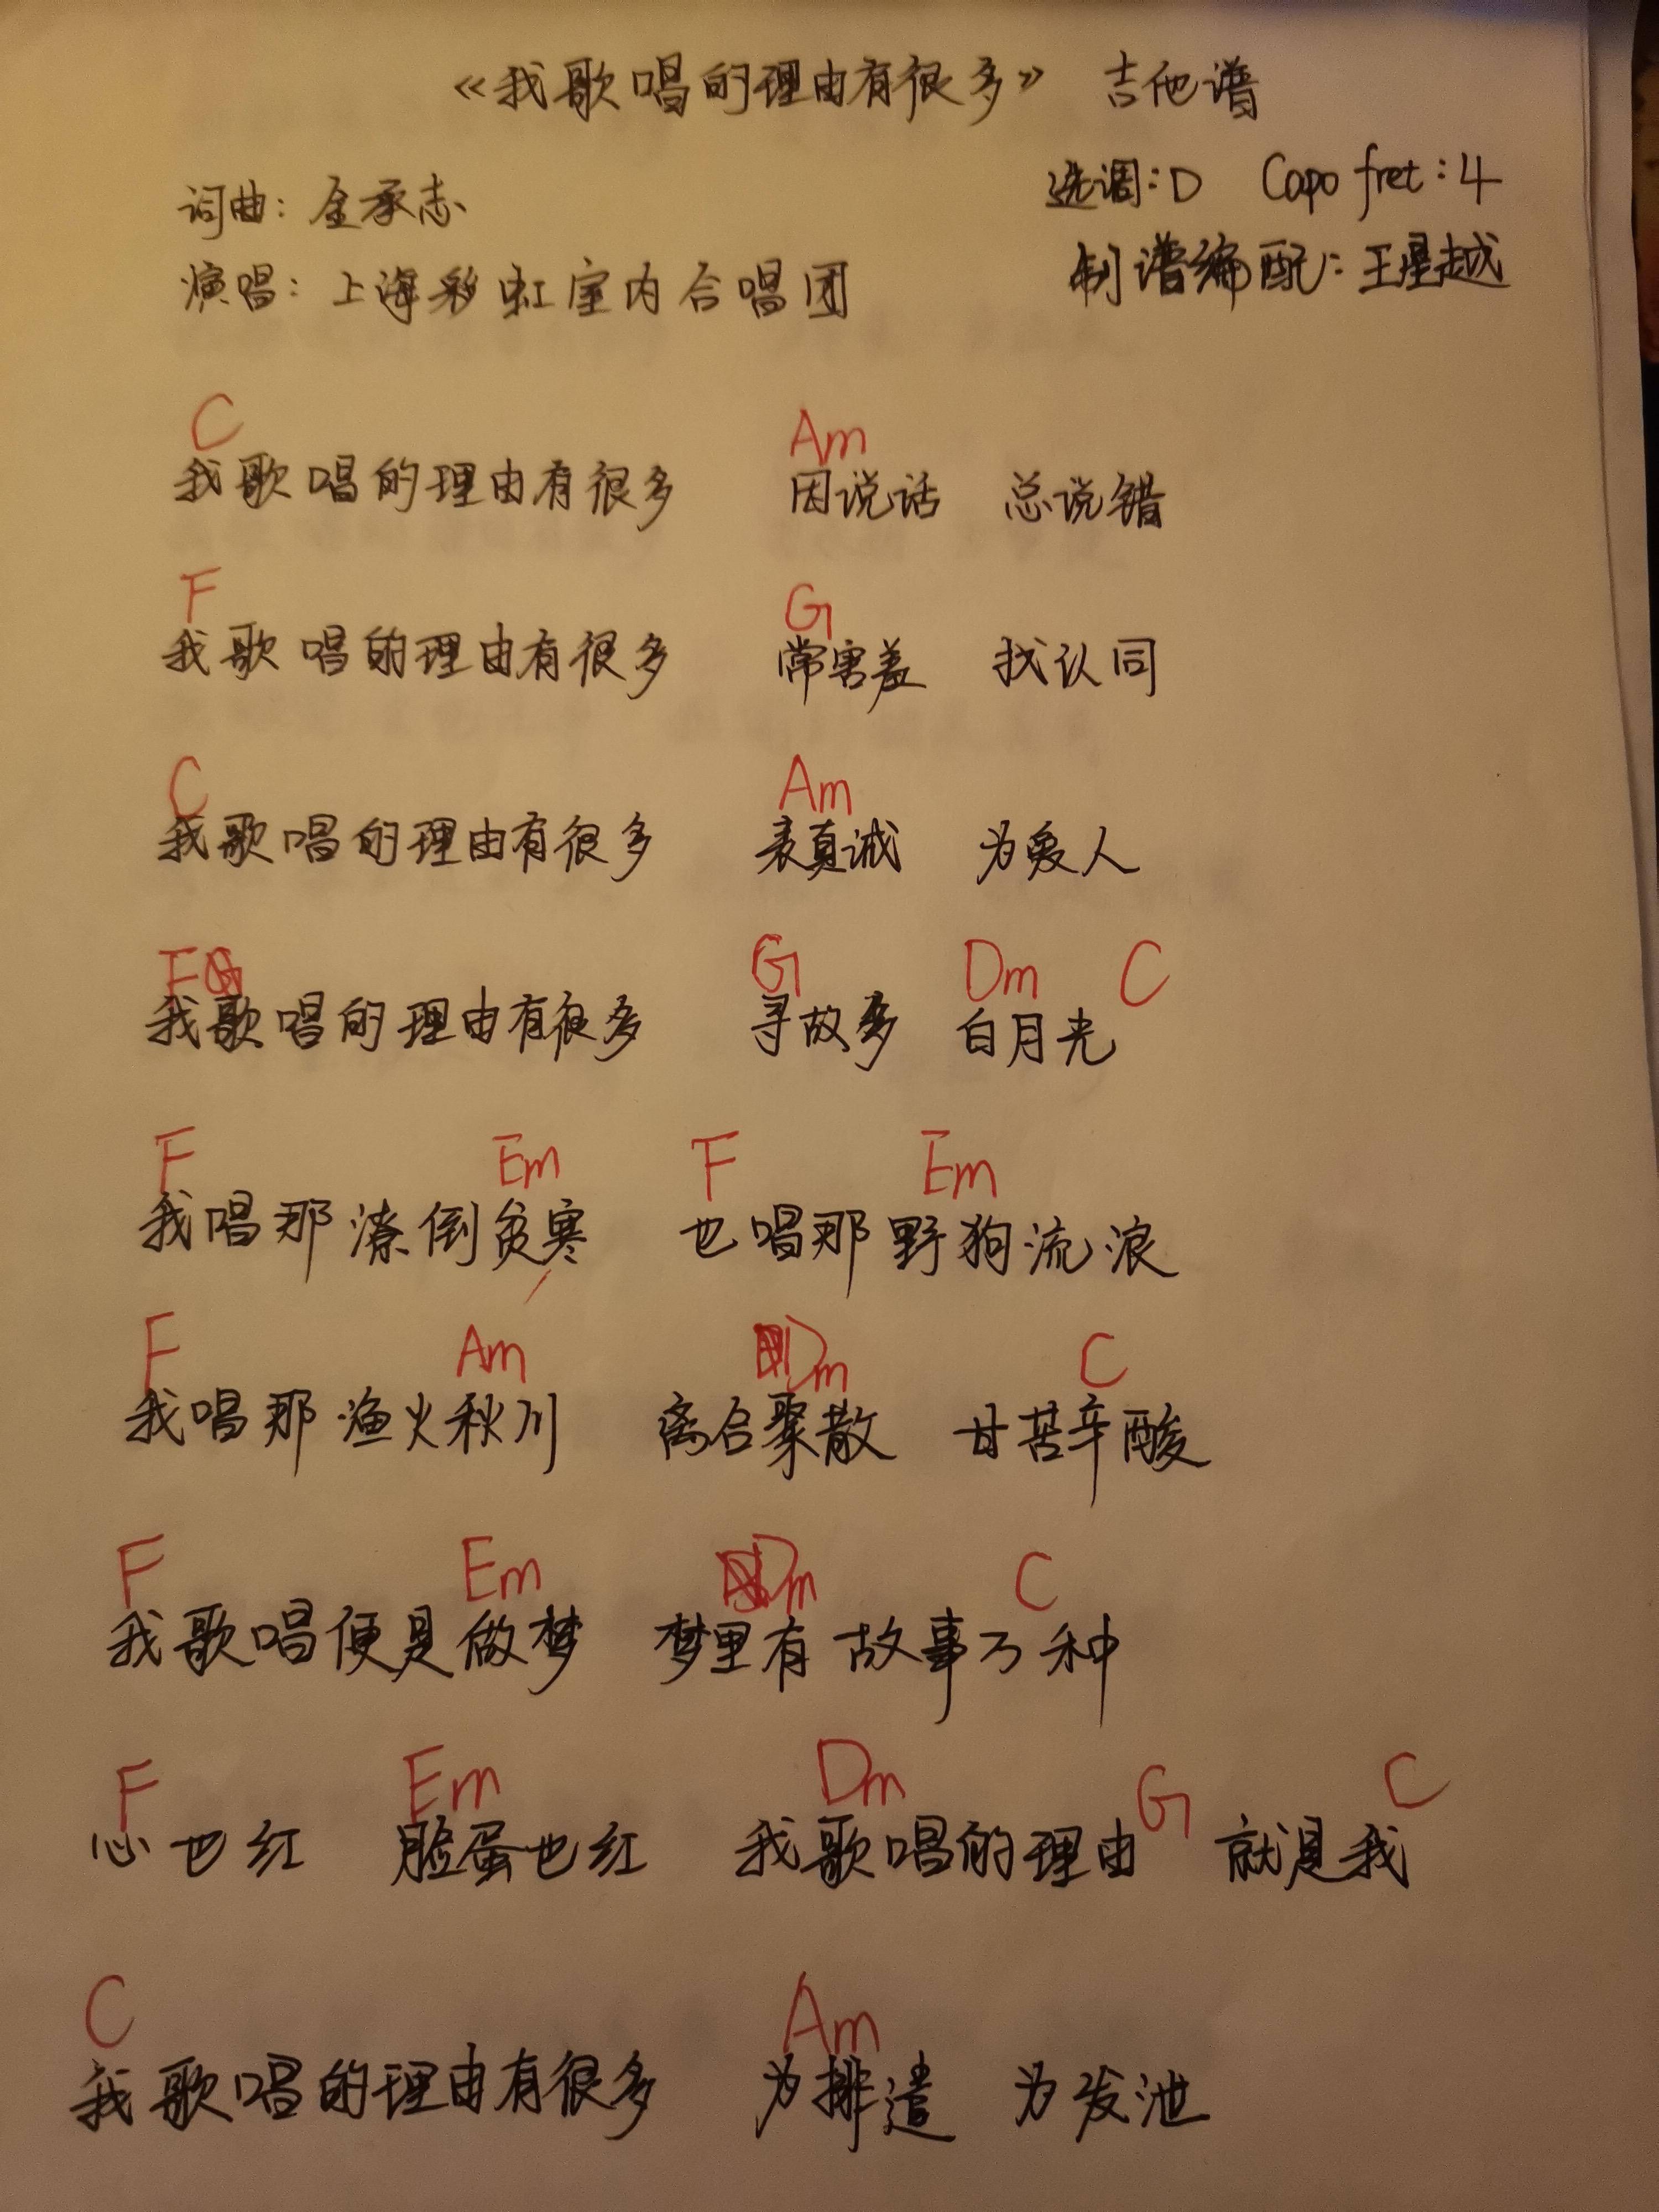 《我歌唱的理由有很多》 吉他谱
词曲：金承志
选调：D Capo fret：4
演唱：上海彩虹室内合唱团
制谱编配：王星越
C Am
我歌唱的理由有很多 因说话 总说错
F G
我歌唱的理由有很多 常害羞 找认同
C Am
我歌唱的理由有很多 表真诚 为爱人
F G Dm C
我歌唱的理由有很多 寻故乡 白月光
F Em F Em
我唱那潦倒贫寒 也唱那野狗流浪
F Am Dm C
我唱那渔火秋川 离合聚散 甘苦辛酸
F Em Dm C
我歌唱便是做梦 梦里有故事万种
F Em Dm G C
心也红 脸蛋也红 我歌唱的理由 就是我
C Am
我歌唱的理由有很多 为排遣 为发泄